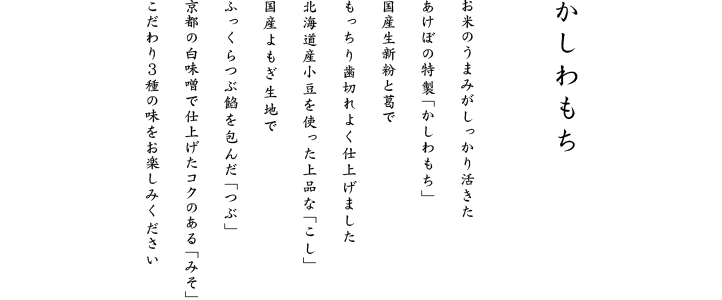 かしわもち
お米のうまみがしっかり活きた
あけぼの特製「かしわもち」
国産生新粉と葛で
もっちり歯切れよく仕上げました
北海道産小豆を使った上品な「こし」
国産よもぎ生地で
ふっくらつぶ餡を包んだ「つぶ」
京都の白味噌で仕上げたコクのある「みそ」
こだわり3種の味をお楽しみください